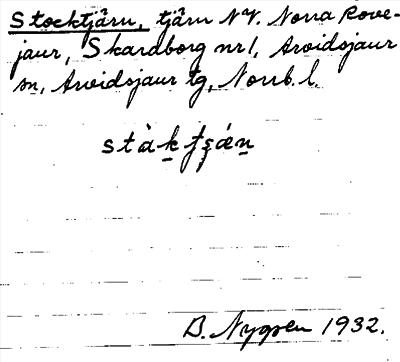 Stocktjärn, tjärn NV. Norra Rove-
jaur, Skardborg nr 1, Arvidsjaur
sn, Arvidsjaur tg, Norrb. l.
B. Nygren 1932.